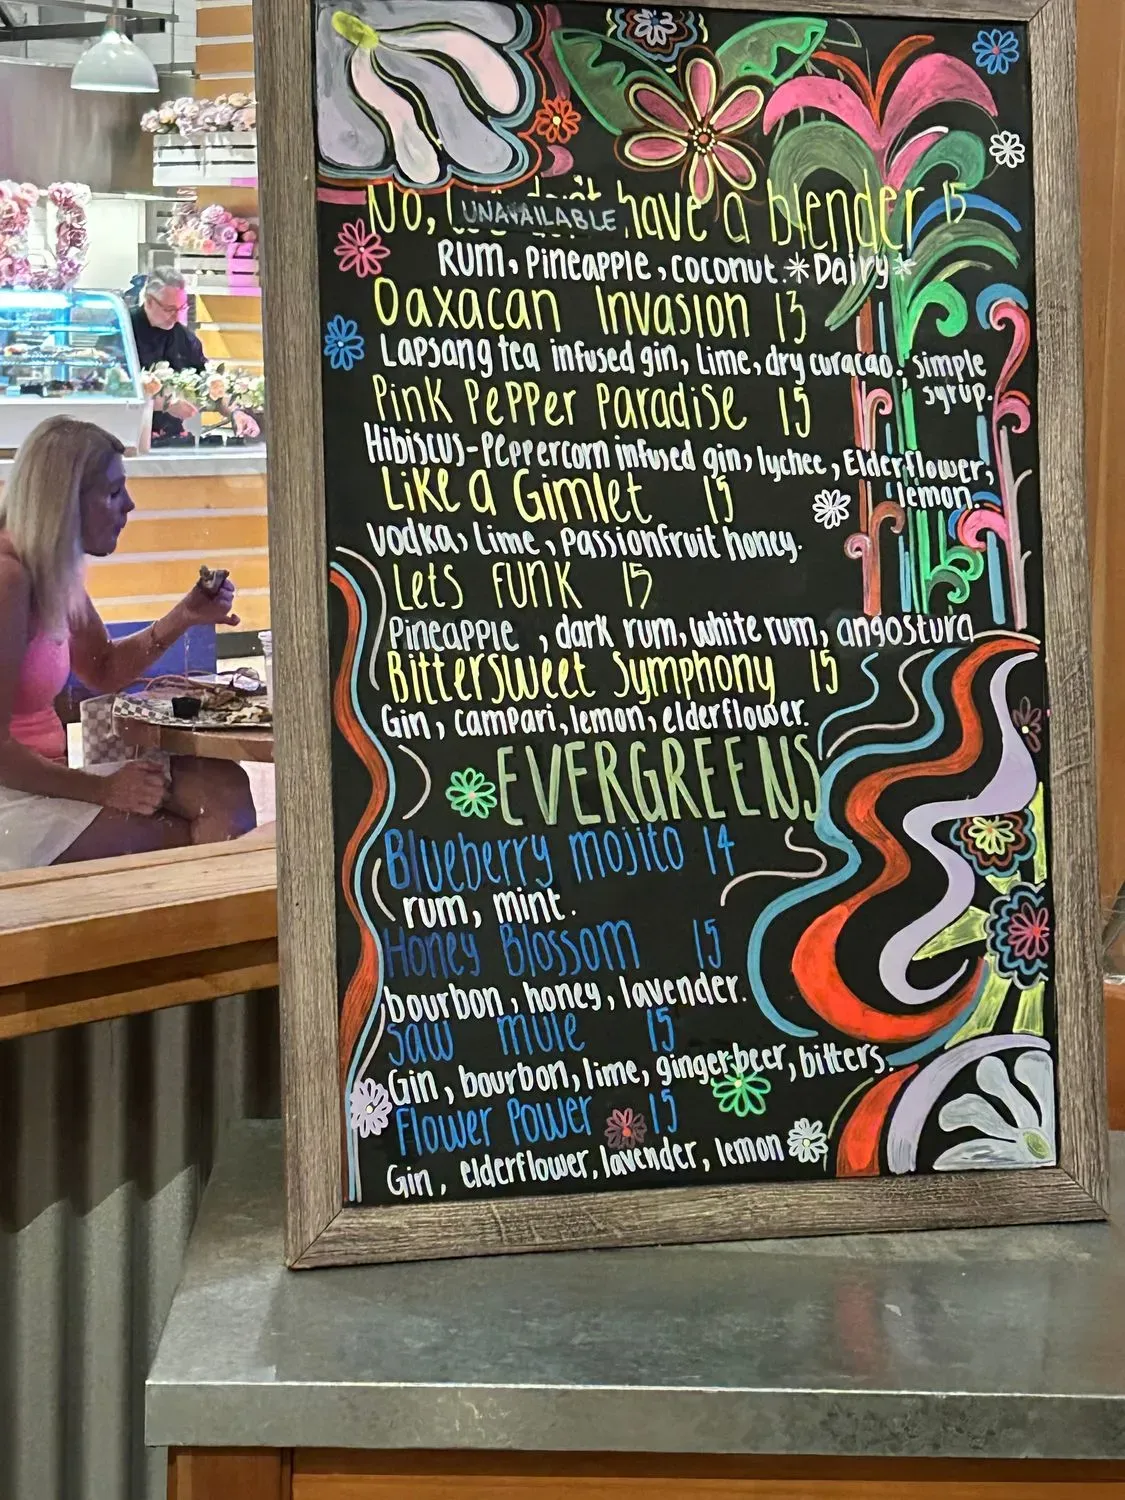 No, have a blender 15
UNAVAILABLE
Rum, Pineapple, coconut. *Dairy*
Oaxacan Invasion 13
Lapsang tea infused gin, Lime, dry curacao, simple
syrup.
Pink Pepper Paradise 15
Hibiscus-Peppercorn infused gin, lychee, Elderflower,
lemon.
Like a Gimlet 15
Vodka, Lime, Passionfruit honey.
Lets FUNK 15
Pineapple, dark rum, white rum, angostura
Bittersweet Symphony 15
Gin, campari, lemon, elderflower.
EVERGREENS
Blueberry mojito 14
rum, mint.
Honey Blossom 15
bourbon, honey, lavender.
Saw mule 15
Gin, bourbon, lime, ginger beer, bitters.
Flower Power 15
Gin, elderflower, lavender, lemon